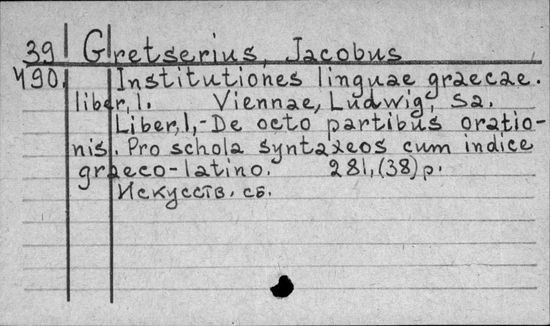 39 Gretserius, Jacobus
490. Institutiones linguae graecae.
liber, 1. Viennae, Ludwig, sa.
Liber, 1,-De octo partibus oratio-
nis. Pro schola syntaxeos cum indice
graeco-latino. 281, (38) p.
Искусств. сб.